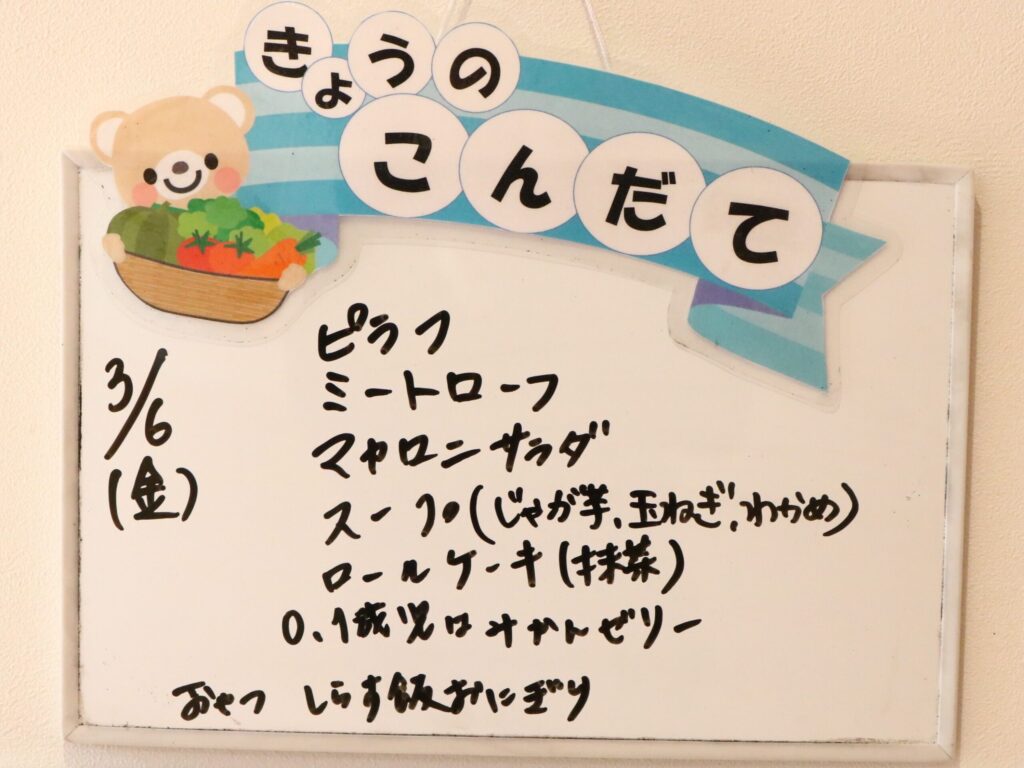 きょうの
こんだて
3/6
(金)
ピラフ
ミートローフ
マカロニサラダ
スープ(じゃが芋、玉ねぎ、わかめ)
ロールケーキ(抹茶)
0、1歳児はみかんゼリー
おやつ しらす飯おにぎり